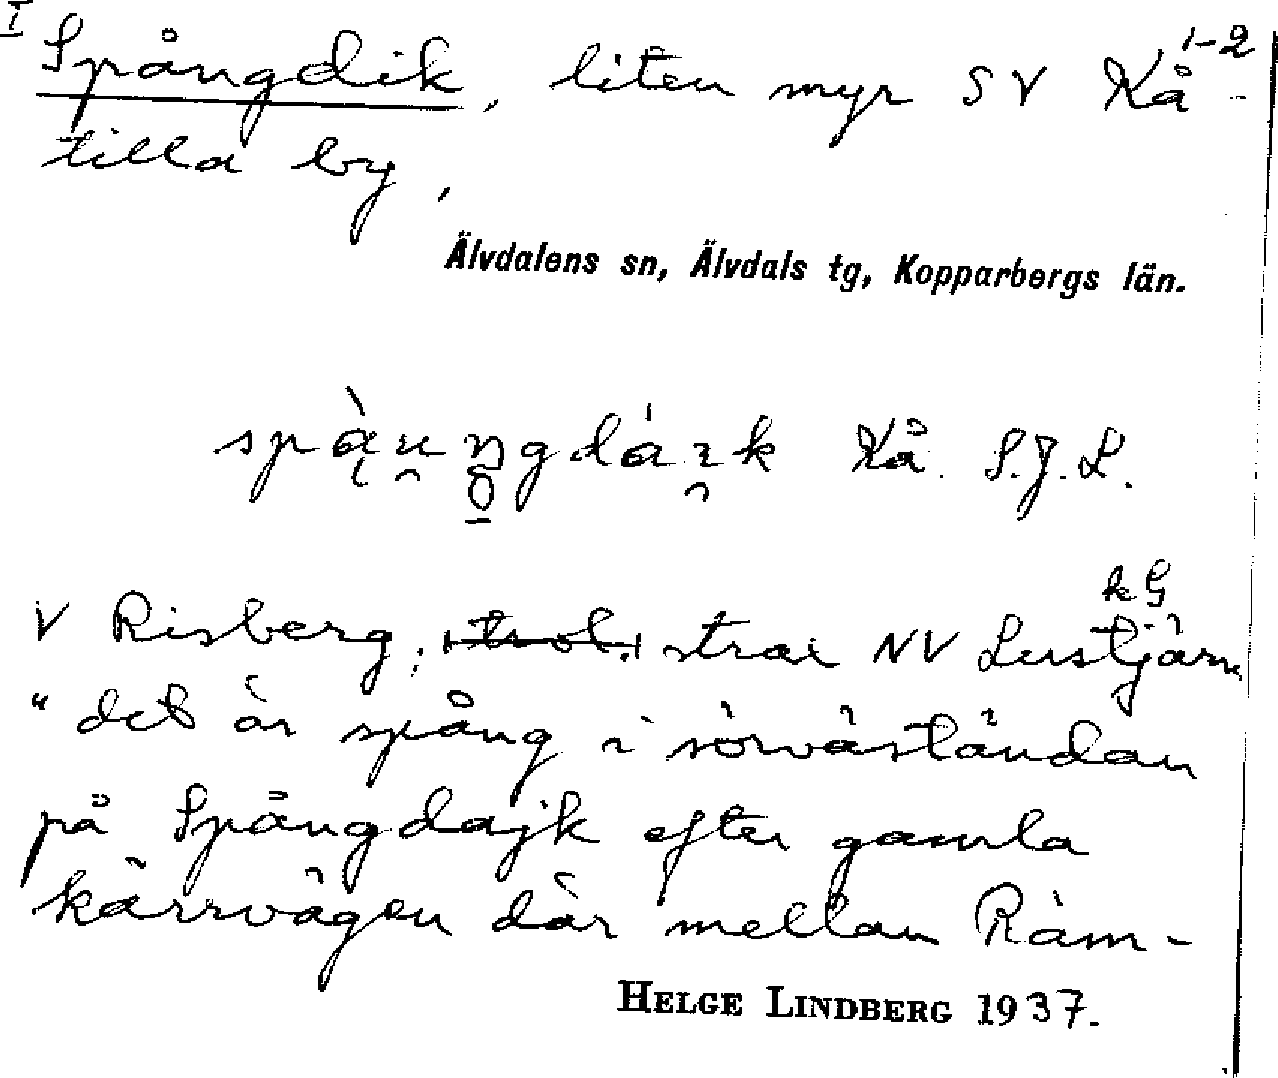 I
1-2
Spångdik, liten myr SV Kå-
tilla by,
Älvdalens sn, Älvdals tg, Kopparbergs län.
Kå. S.J.L.
kG
V Risberg; trol. strax NV Lustjärn
"det är spång i sörväständan
på Spångdajk efter gamla
kärrvägen där mellan Räm-
HELGE LINDBERG 1937.